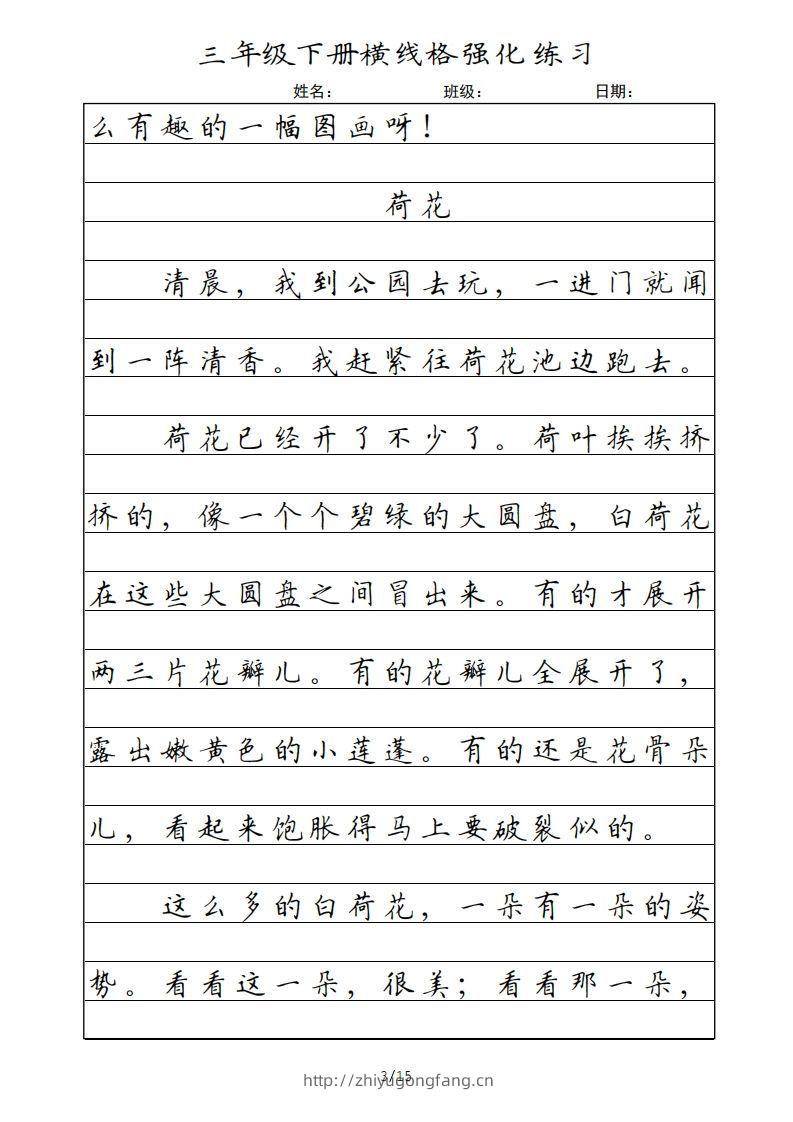 三年级下册横线格强化练习
姓名： 班级： 日期：
么有趣的一幅图画呀！
荷花
清晨，我到公园去玩，一进门就闻
到一阵清香。我赶紧往荷花池边跑去。
荷花已经开了不少了。荷叶挨挨挤
挤的，像一个个碧绿的大圆盘，白荷花
在这些大圆盘之间冒出来。有的才展开
两三片花瓣儿。有的花瓣儿全展开了，
露出嫩黄色的小莲蓬。有的还是花骨朵
儿，看起来饱胀得马上要破裂似的。
这么多的白荷花，一朵有一朵的姿
势。看看这一朵，很美；看看那一朵，
3/15
http://zhiyugongfang.cn